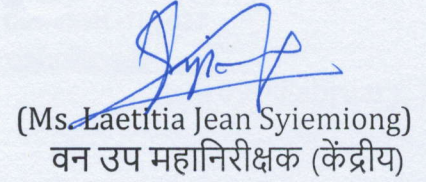 (Ms. Laetitia Jean Syiemiong)
वन उप महानिरीक्षक (केंद्रीय)